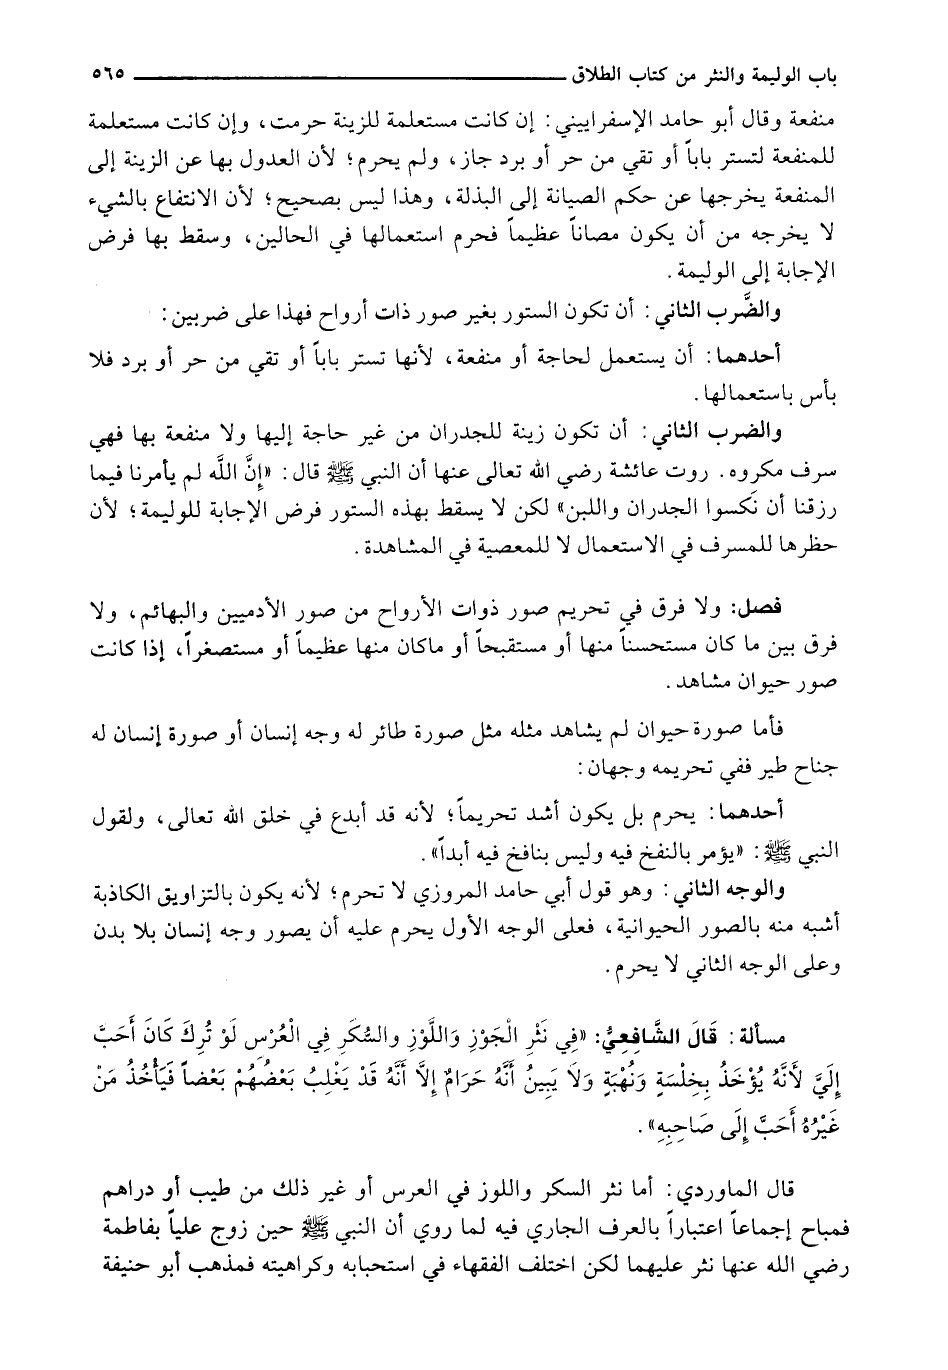 باب الوليمة والنثر من كتاب الطلاق ٥٦٥
منفعة وقال أبو حامد الإسفراييني: إن كانت مستعلمة للزينة حرمت، وإن كانت مستعلمة
للمنفعة لتستر باباً أو تقي من حر أو برد جاز، ولم يحرم؛ لأن العدول بها عن الزينة إلى
المنفعة يخرجها عن حكم الصيانة إلى البذلة، وهذا ليس بصحيح؛ لأن الانتفاع بالشيء
لا يخرجه من أن يكون مصاناً عظيماً فحرم استعمالها في الحالين، وسقط بها فرض
الإجابة إلى الوليمة.
والضَّرب الثاني: أن تكون الستور بغير صور ذات أرواح فهذا على ضربين:
أحدهما: أن يستعمل لحاجة أو منفعة، لأنها تستر باباً أو تقي من حر أو برد فلا
بأس باستعمالها.
والضرب الثاني: أن تكون زينة للجدران من غير حاجة إليها ولا منفعة بها فهي
سرف مكروه. روت عائشة رضي الله تعالى عنها أن النبي ﷺ قال: «إنَّ اللَّه لم يأمرنا فيما
رزقنا أن نَكسوا الجدران واللبن» لكن لا يسقط بهذه الستور فرض الإجابة للوليمة؛ لأن
حظرها للمسرف في الاستعمال لا للمعصية في المشاهدة.
فصل: ولا فرق في تحريم صور ذوات الأرواح من صور الأدميين والبهائم، ولا
فرق بين ما كان مستحسناً منها أو مستقبحاً أو ماكان منها عظيماً أو مستصغراً، إذا كانت
صور حيوان مشاهد.
فأما صورة حيوان لم يشاهد مثله مثل صورة طائر له وجه إنسان أو صورة إنسان له
جناح طير ففي تحريمه وجهان:
أحدهما: يحرم بل يكون أشد تحريماً؛ لأنه قد أبدع في خلق الله تعالى، ولقول
النبي ﷺ: «يؤمر بالنفخ فيه وليس بنافخ فيه أبداً».
والوجه الثاني: وهو قول أبي حامد المروزي لا تحرم؛ لأنه يكون بالتزاويق الكاذبة
أشبه منه بالصور الحيوانية، فعلى الوجه الأول يحرم عليه أن يصور وجه إنسان بلا بدن
وعلى الوجه الثاني لا يحرم.
مسألة: قَالَ الشَّافِعِيُّ: «فِي نَثْرِ الْجَوْزِ وَاللَّوْزِ والسُّكَرِ فِي الْعُرْسِ لَوْ تُرِكَ كَانَ أَحَبَّ
إِلَيَّ لأَنَّهُ يُؤْخَذُ بِخِلْسَةٍ وَنُهْبَةٍ وَلَا يَبِينُ أَنَّهُ حَرَامٌ إِلاَّ أَنَّهُ قَدْ يَغْلِبُ بَعْضُهُمْ بَعْضاً فَيَأْخُذُ مَنْ
غَيْرُهُ أَحَبَّ إِلَى صَاحِبِهِ».
قال الماوردي: أما نثر السكر واللوز في العرس أو غير ذلك من طيب أو دراهم
فمباح إجماعاً اعتباراً بالعرف الجاري فيه لما روي أن النبي ﷺ حين زوج علياً بفاطمة
رضي الله عنها نثر عليهما لكن اختلف الفقهاء في استحبابه وكراهيته فمذهب أبو حنيفة